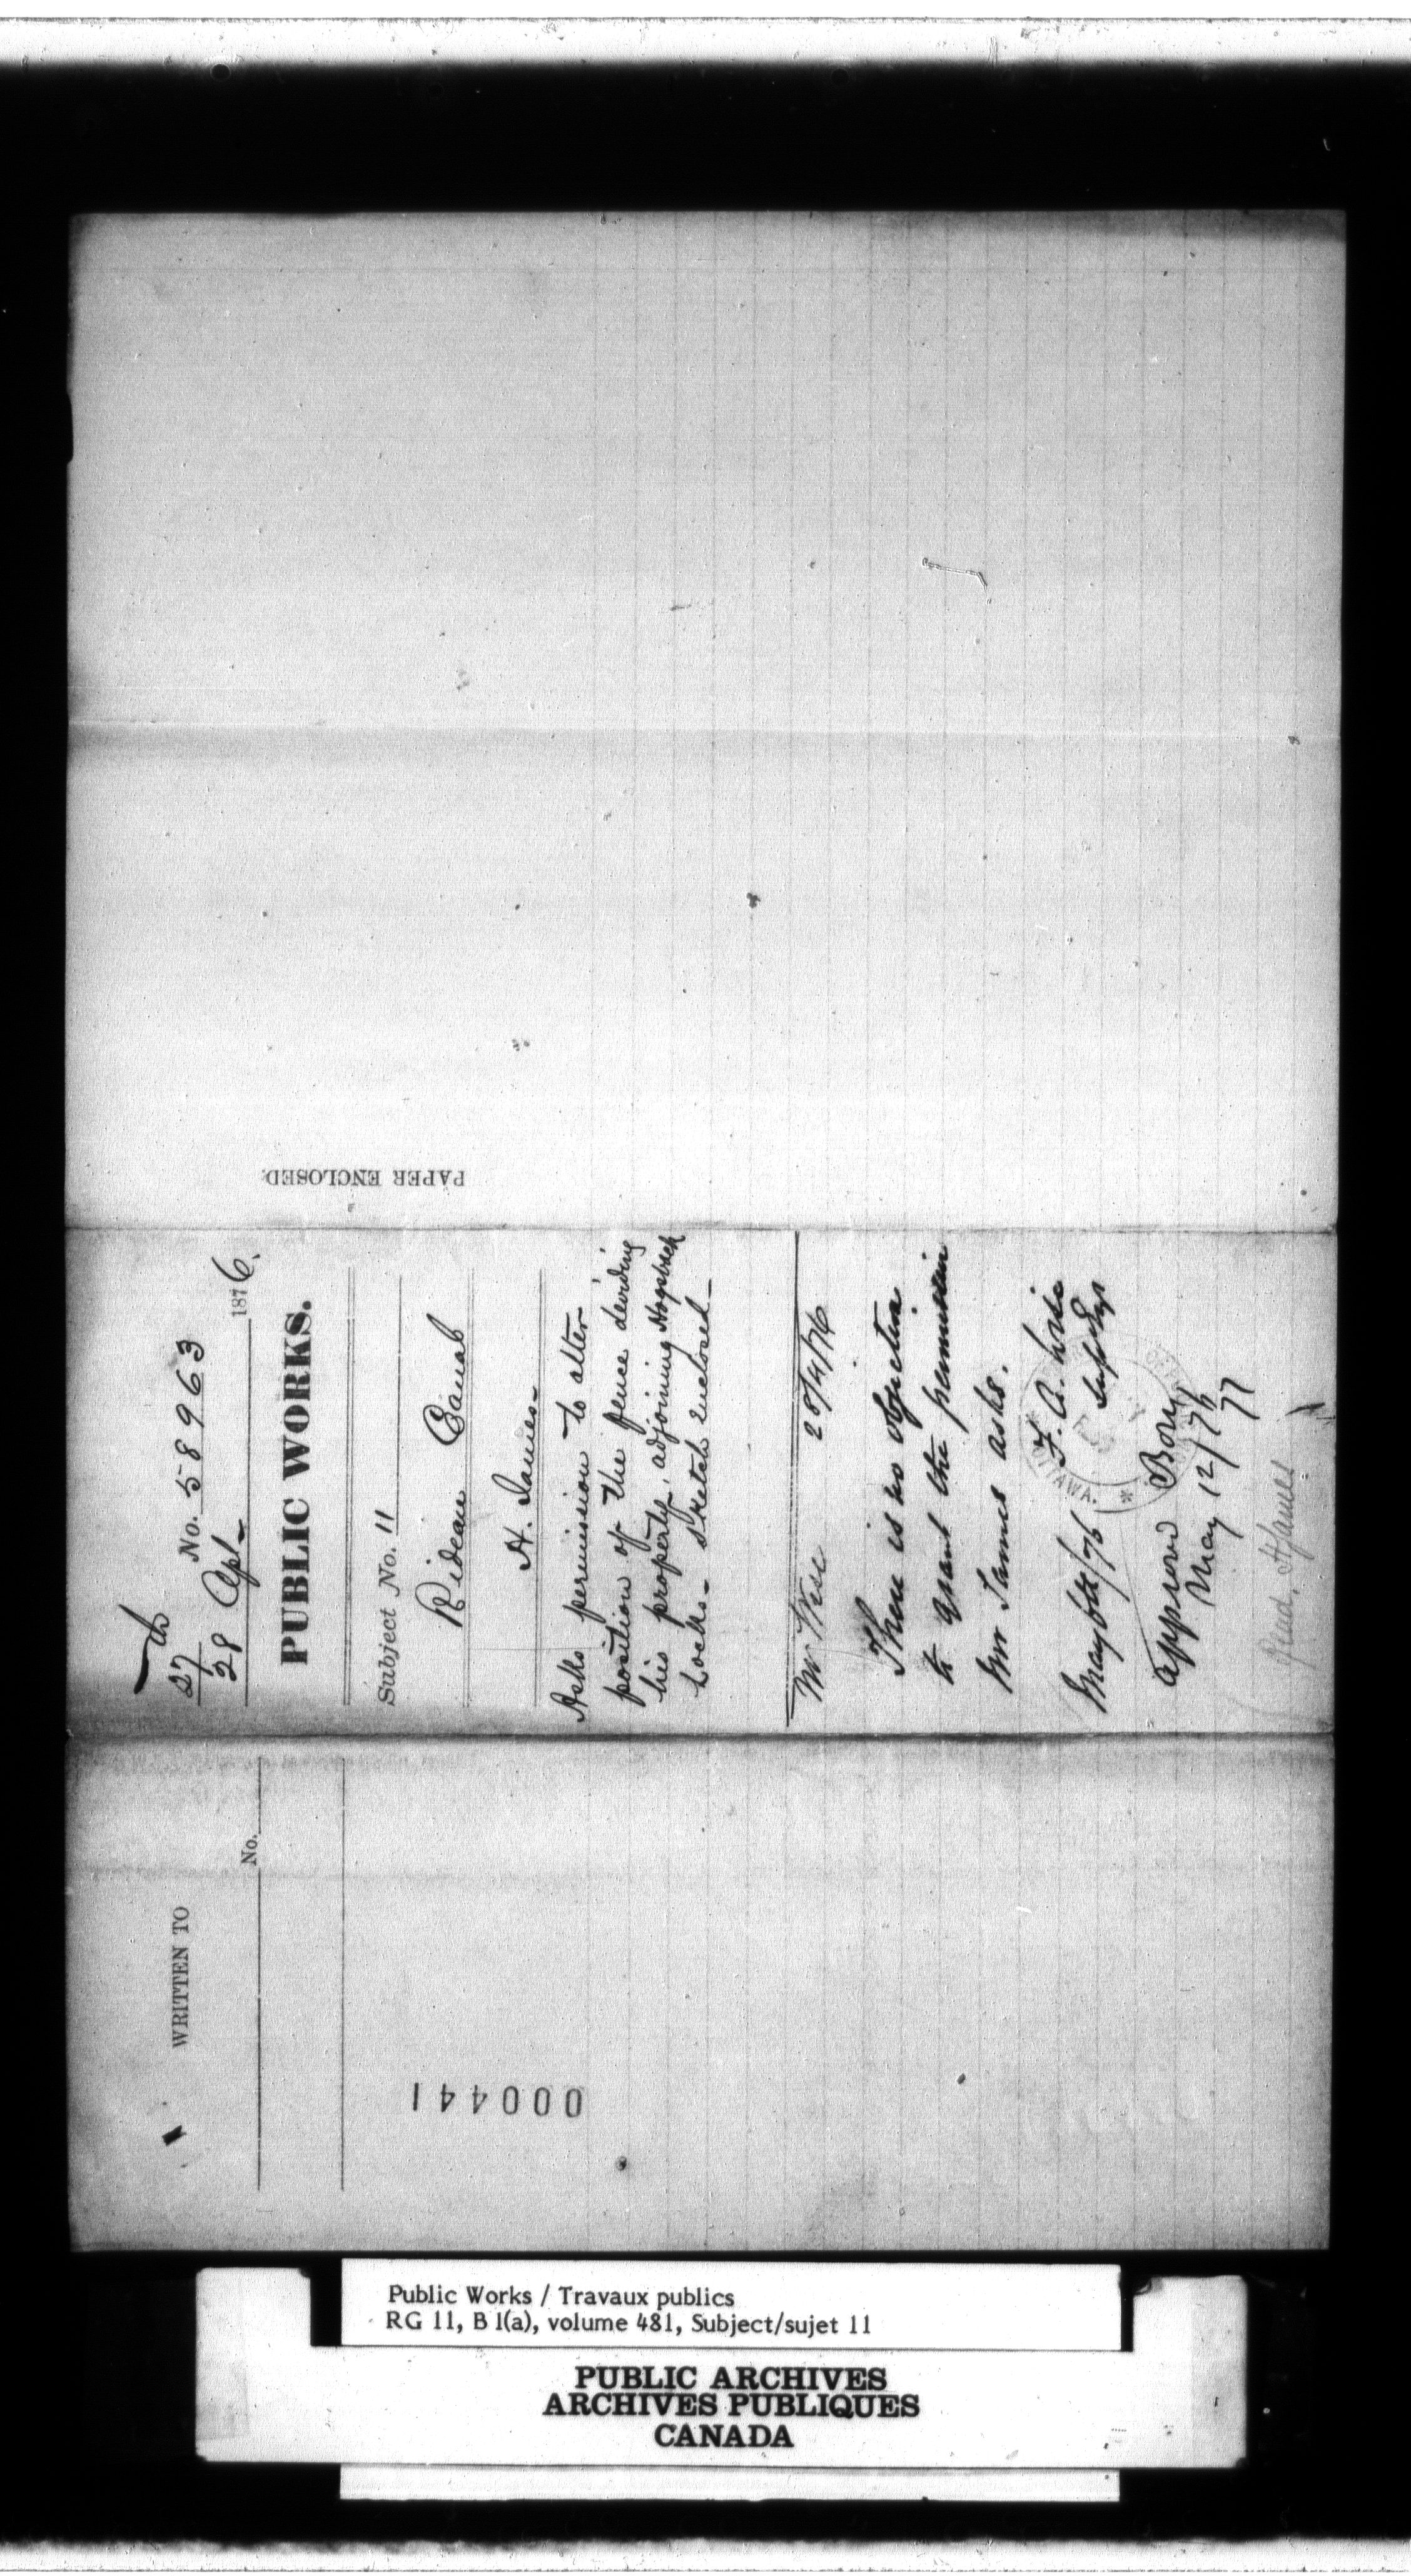 PAPER ENCLOSED
27
28 Apl- 1876.
No. 58963
PUBLIC WORKS.
Subject No. 11
Rideau Canal
H. James-
Asks permission to alter
position of the fence deviding
his property, adjoining Hogsback
Locks- Sketch enclosed-
Mr Wise 28/4/76
There is no objection
to grant the permission
Mr James asks.
F. A. Wise
May 6th/76
OTTAWA.
Approved
May 12/76
77
WRITTEN TO
No.
000441
Public Works / Travaux publics
RG 11, B 1(a), volume 481, Subject/sujet 11
PUBLIC ARCHIVES
ARCHIVES PUBLIQUES
CANADA